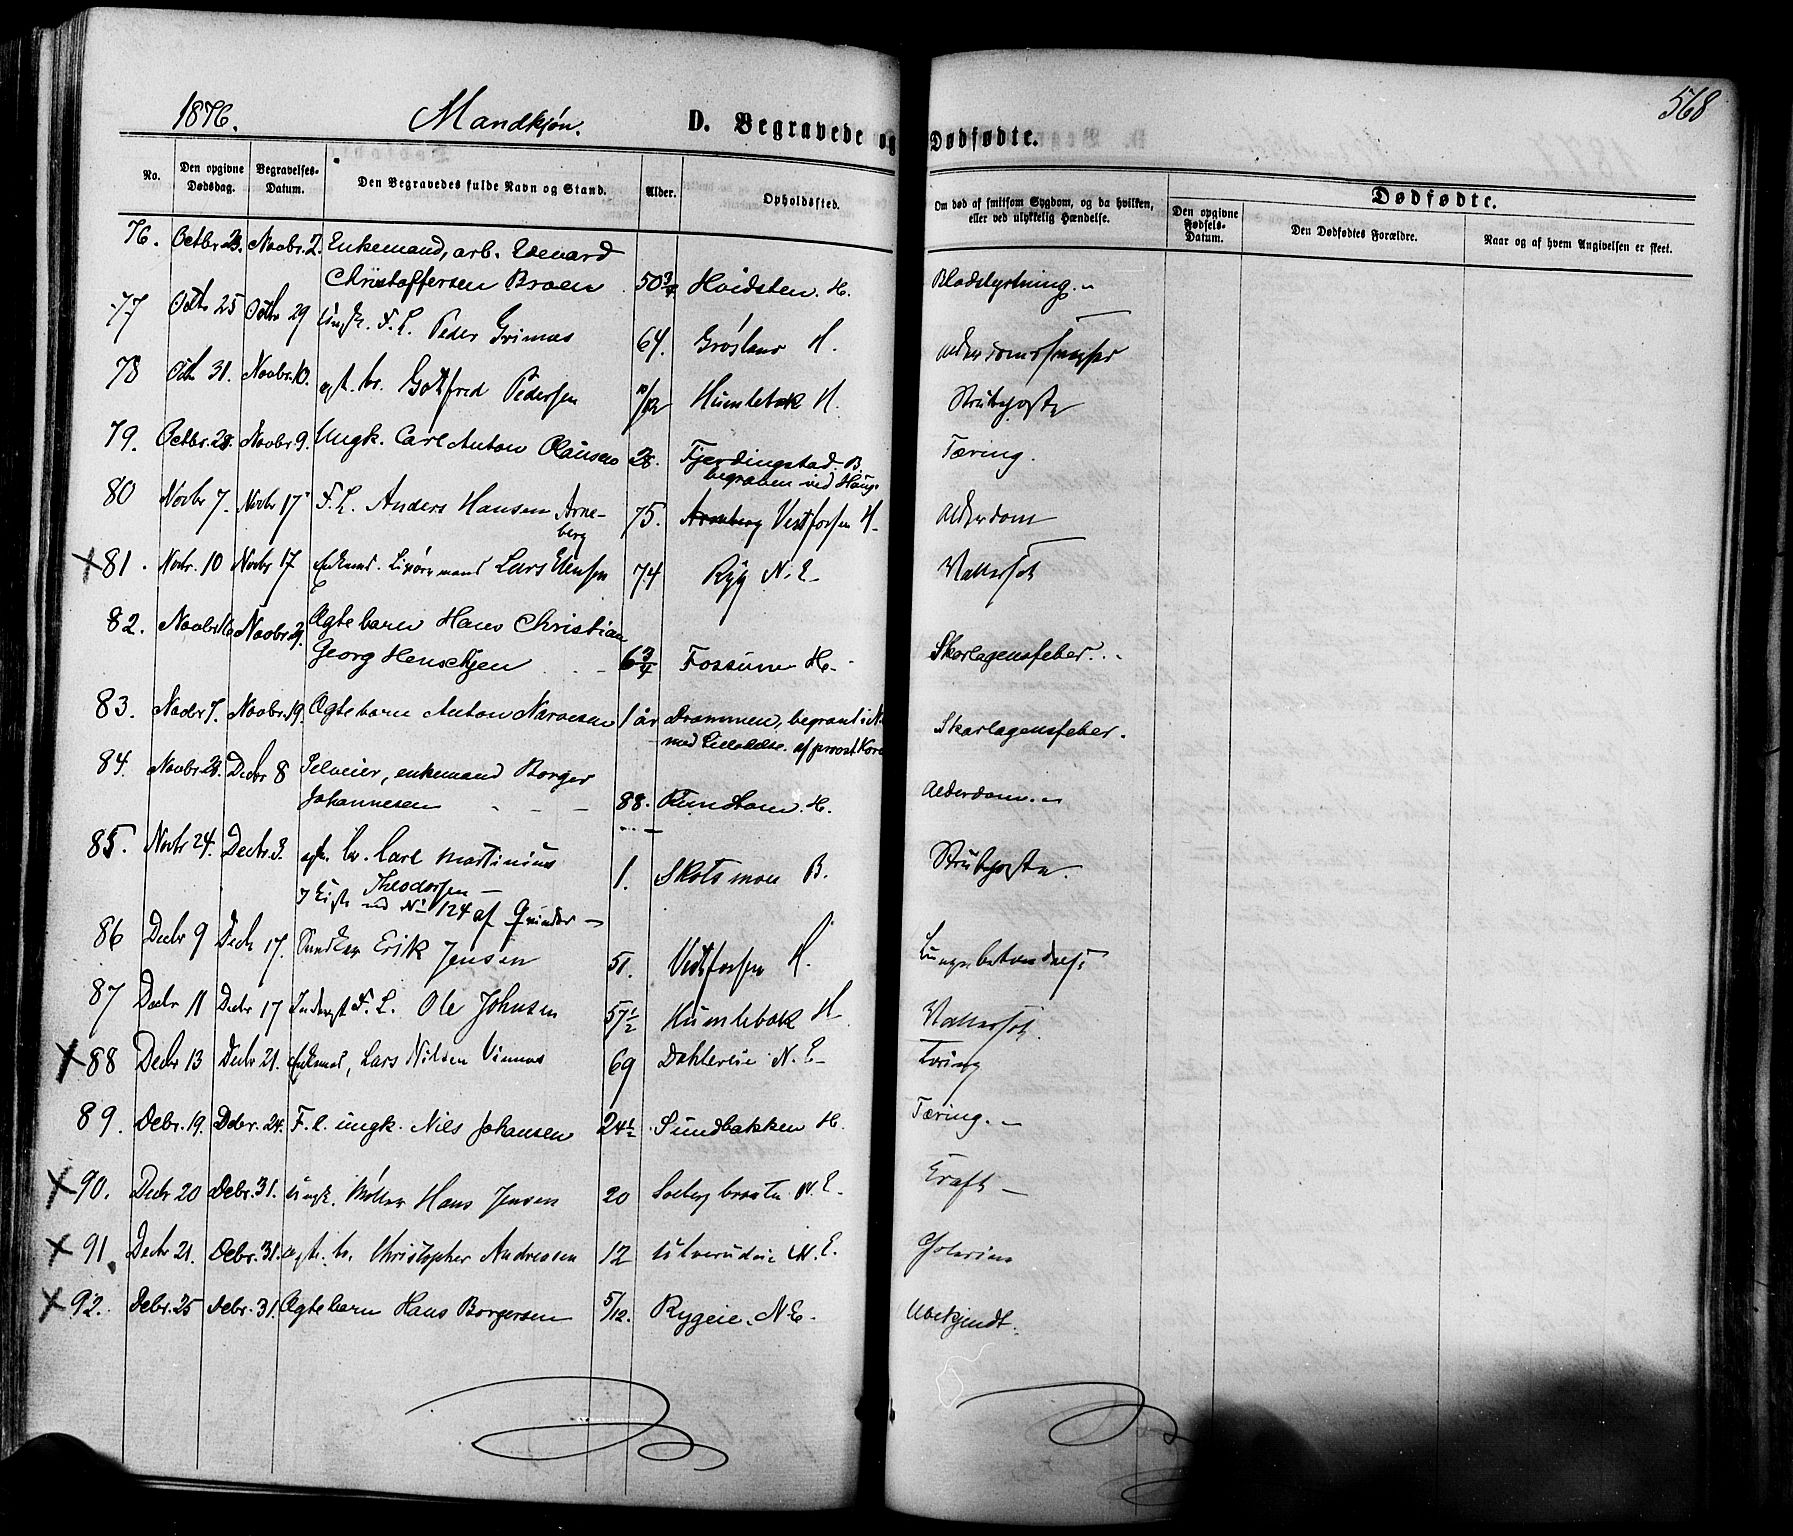 1876. Mandkjøn. D. Begravede og Dødfødte. 568
No. Den opgivne Dødsdag. Begravelses-Datum. Den Begravedes fulde Navn og Stand. Alder. Opholdssted. Om død af smitsom Sygdom, og da hvilken, eller ved ulykkelig Hændelse. Dødfødte.
Den opgivne Fødsels-Datum. Den Dødfødtes Forældre. Naar og af hvem Angivelsen er skeet.
76. Octbr. Novbr. 2. Enkemand, arb. Edevard
Christoffersen Braen 50 3/4 Hvidsten. H. Blodstyrtning.
77 Octbr 25 Octbr 29 Ungk. F. L. Peder Grimas 64. Grøsland H.
78 Octb 31. Novbr. 10. ægt. br. Gottfred Pedersen 10/12 Humlebæk H. Strubehoste
79. Octbr. 28. Novbr. 9. Ungk. Carl Anton Clausen 28. Fjerdingstad. B. Tæring.
begraven ved Haug.
80 Novbr 7. Novbr 17 F. L. Anders Hansen Arne-
berg 75. Arneberg Vestfossen H. Alderdom
81. Novbr. 10 Novbr 17 Enkemd. Lars 74 Ryg N. E. Vattersot
82. Novbr. 16 Novbr. 29. Ægtebarn Hans Christian
Georg Henschjen 6 3/4 Fossum H. Skarlagensfeber.
83. Novbr 7. Novbr. 19. Ægtebarn Anton Narvesen 1 år Drammen, begravet i N. Skarlagensfeber.
med af provst
84. Novbr. 28. Decbr 8 Selveier, enkemand Borger
Johannesen 88. H. Alderdom.
85. Novbr 24. Decbr. 3. ægt. br. Carl Martinius
Theodorsen 1. Skotsmoen B. Strubehoste.
No 124 af Qvinder
86 Decbr 9 Decbr 17. Erik Jensen 51. Vestfossen H. Lungebetændelse
87 Decbr 11 Decbr 17 F. L. Ole Johnsen 57 1/2 Humlebæk H Vattersot.
88 Decbr 13 Decbr 21. Enkemd, Lars Nilsen Vinnes 69 N. E. Tæring
89. Debr. 19. Debr. 24. F. l. ungk. Nils Johansen 24 1/2 Sundbakken H. Tæring.
90. Decbr 20 Debr. 31. Ungk. Møller Hans Jensen 20 Solbergbraaten N. E. Kræft
91. Decbr 21. Debr. 31. ægte. br. Christopher Andreasen 12 Ulverudeie N. E. Cholerine
92. Debr. 25 Debr. 31. Ægtebarn Hans Borgersen 5/12. Rygeie. N. E. Ubekjendt.